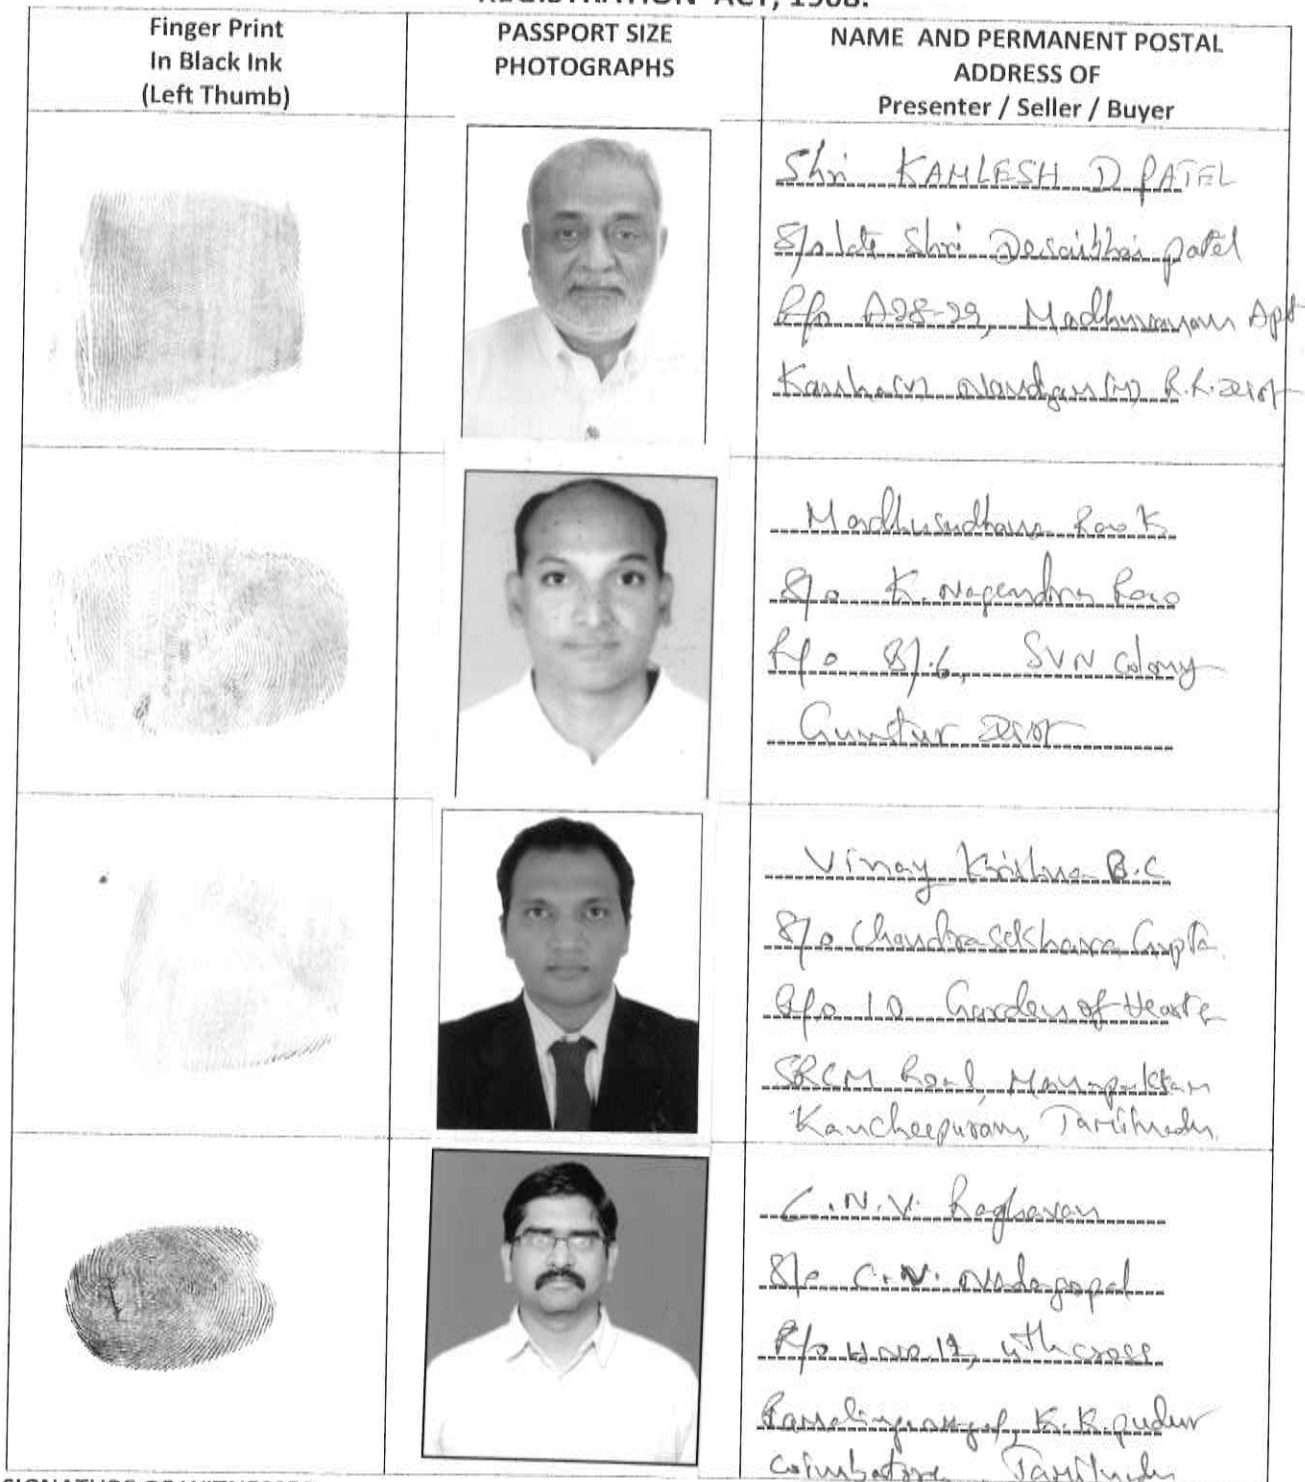 REGISTRATION ACT, 1908.
Finger Print
In Black Ink
(Left Thumb)
PASSPORT SIZE
PHOTOGRAPHS
NAME AND PERMANENT POSTAL
ADDRESS OF
Presenter / Seller / Buyer
Shri KAMLESH D PATEL
S/o late Shri Desaibhai patel
R/o A28-29, Madhuvanam Apt
Kanha(v) Nandgam(m) R.R. Dist
Madhusudhana Rao K
S/o K. Nagendra Rao
R/o 87.6, SVN Colony
Guntur Dist
Vinay Krishna B.C
S/o Chandrasekhara Gupta
R/o 10 Gardens of Hearts
SRCM Road, Manapakkam
Kancheepuram, Tamilnadu
C.N.V. Raghavan
S/o C.N.
R/o H.No. 4th cross
K.K. pudur
Coimbatore Tamilnadu
SIGNATURE OF WITNESSES